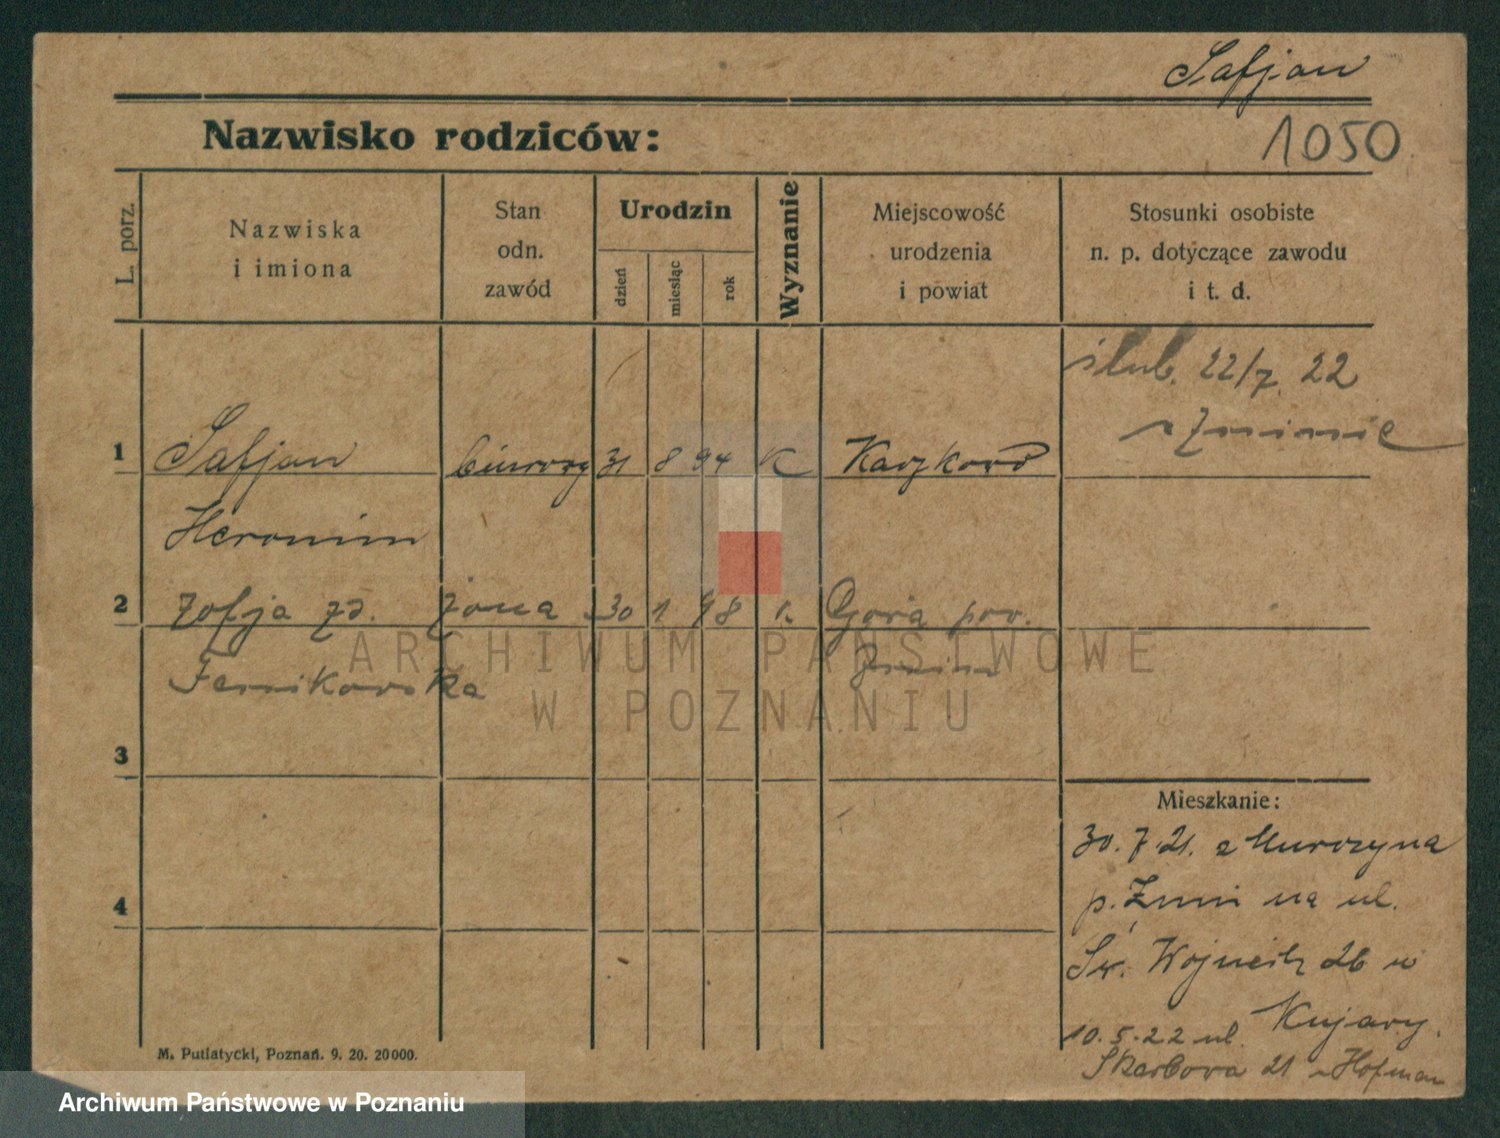 Safjan
1050
Nazwisko rodziców:
L. porz.
Nazwiska
i imiona
Stan
odn.
zawód
Urodzin
dzień
miesiąc
rok
Wyznanie
Miejscowość
urodzenia
i powiat
Stosunki osobiste
n. p. dotyczące zawodu
i t. d.
ślub. 22/7 22
w Żninie
1 Safjan 31 8 94 K
Heronim
2 Zofja zd. żona 30 1 98 k. Góra pow.
Żnin
3
Mieszkanie:
30.7.21. z Murczyna
4
p. Żnin na ul.
Św. Wojciech 26 u
Kujawy.
10.5.22 ul.
Skarbowa 21 u Hofman
M. Putiatycki, Poznań. 9. 20. 20000.
ARCHIWUM PAŃSTWOWE
W POZNANIU
Archiwum Państwowe w Poznaniu